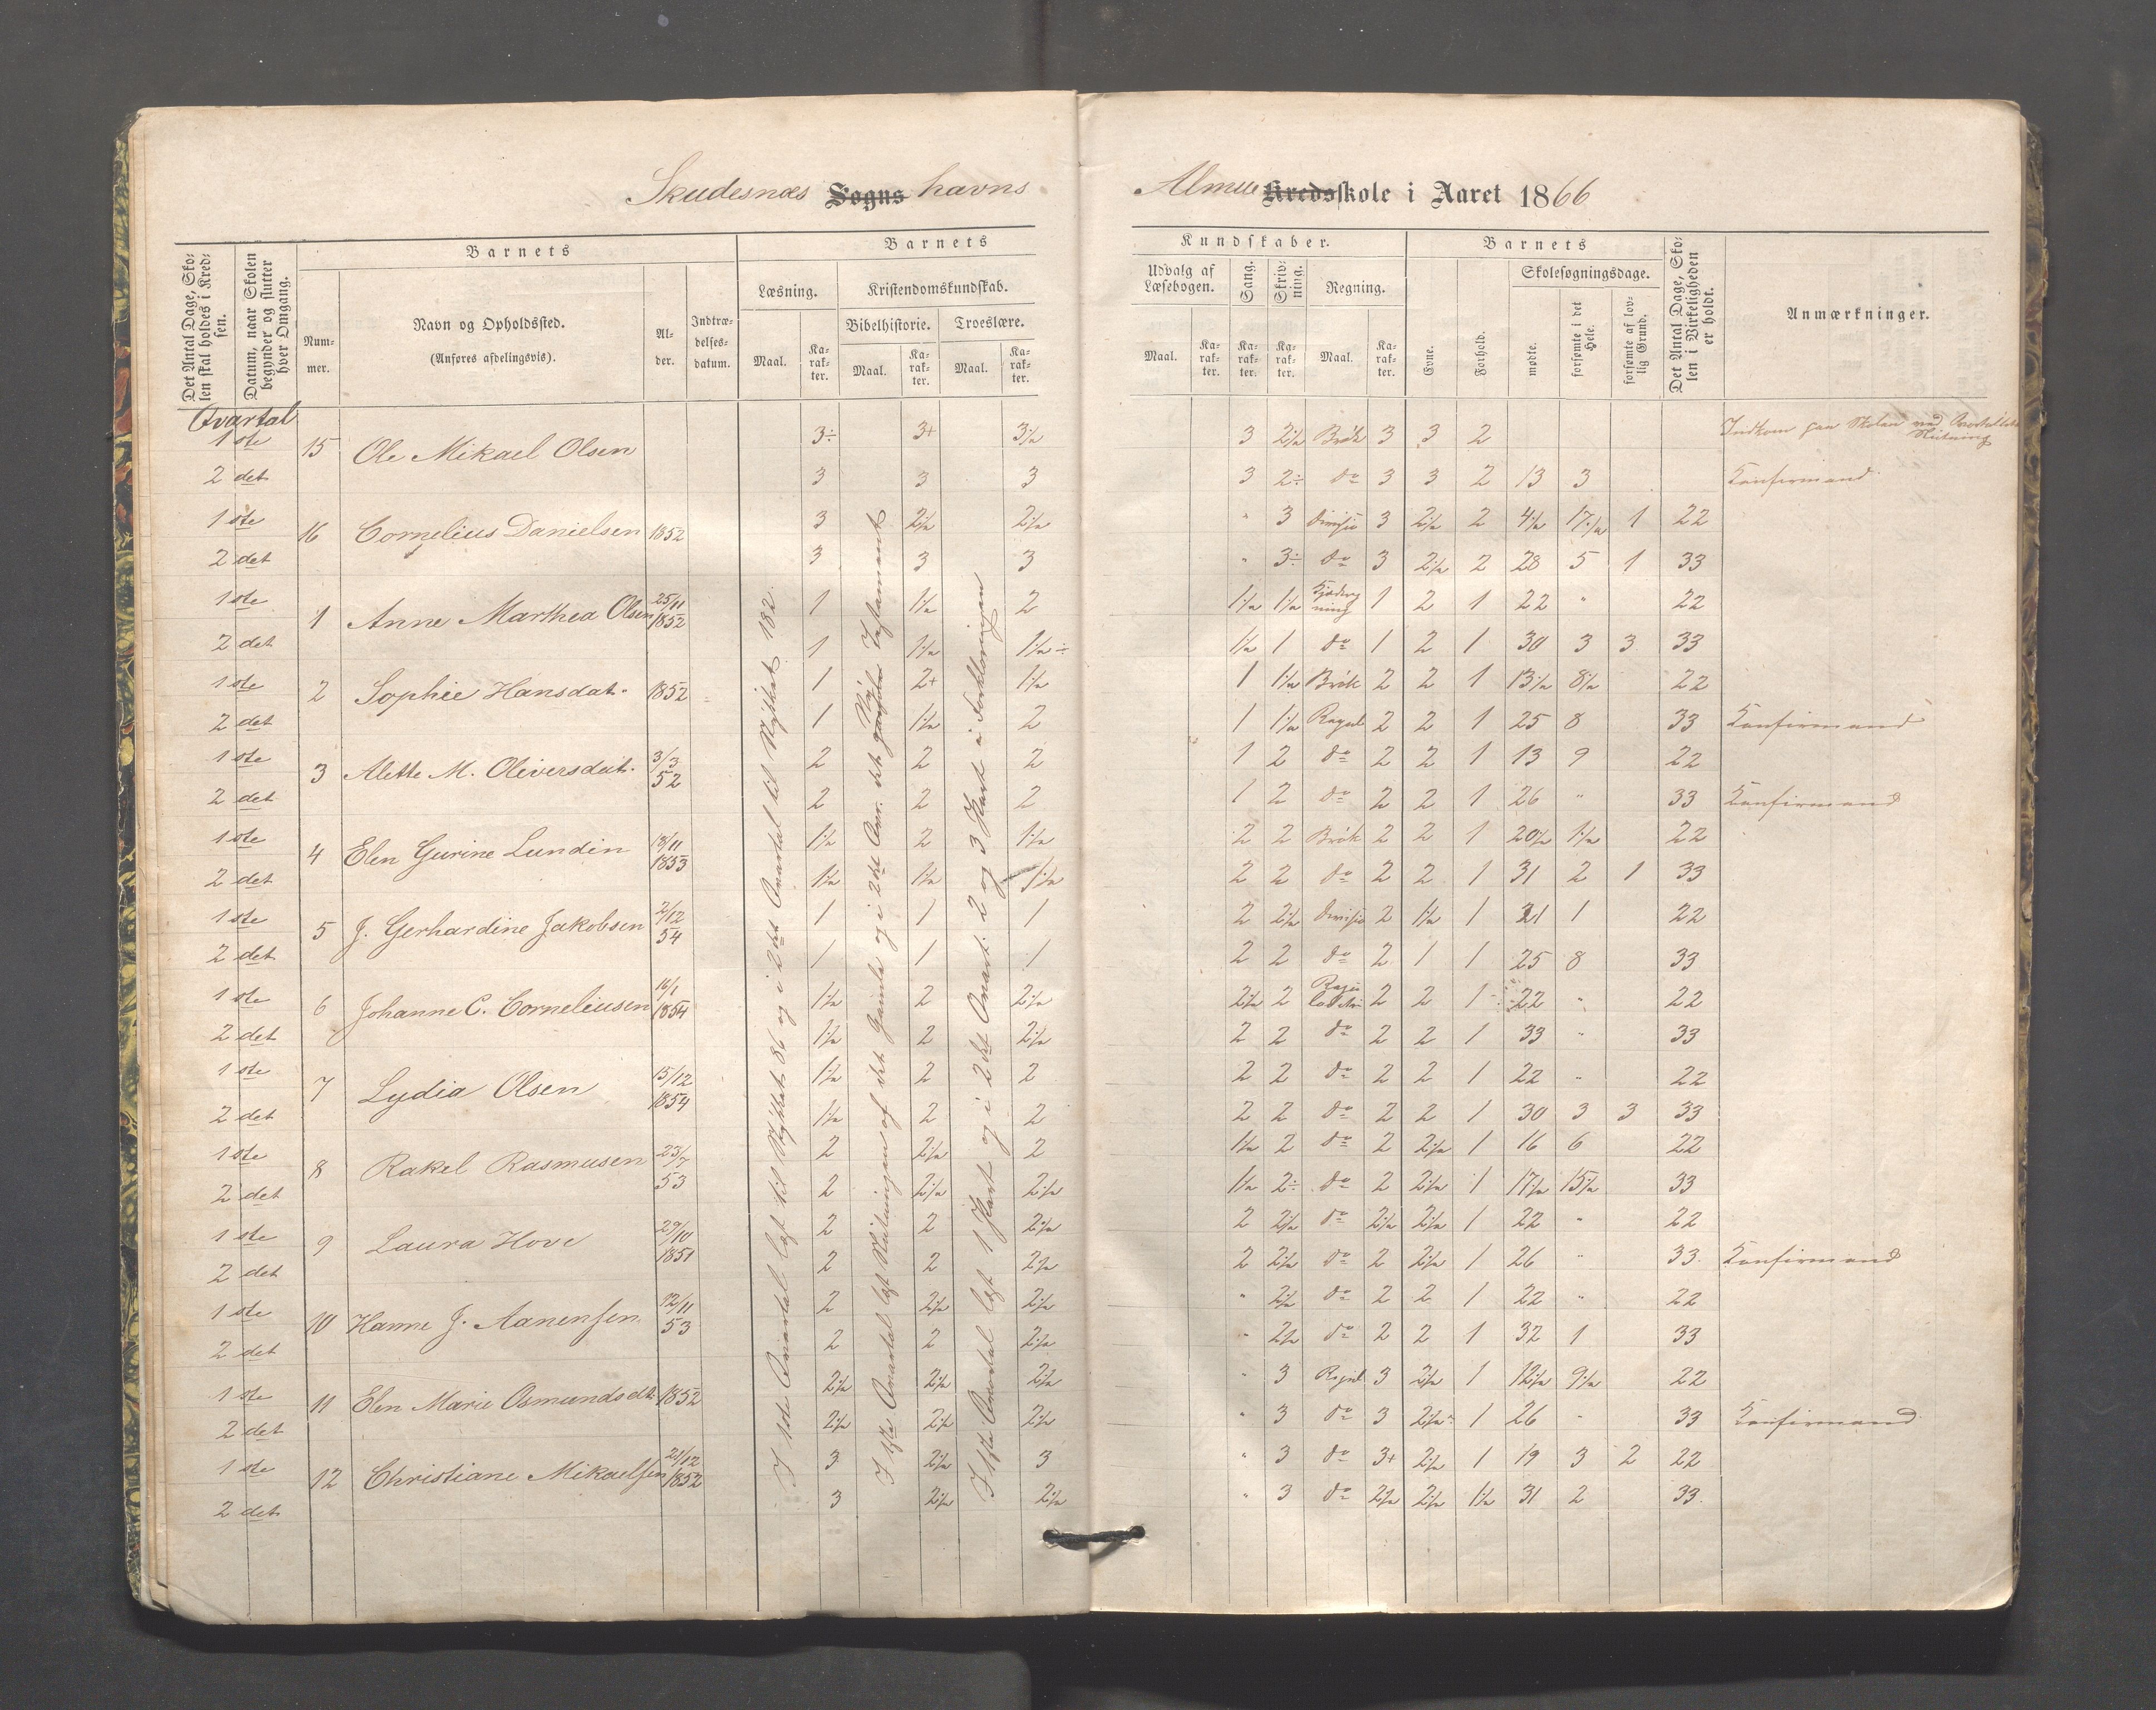 Skudesnæs Sogns havns
Almueskole i Aaret 1866
Det Antal Dage, Skolen skal holdes i Kredsen.
Datum, naar Skolen begynder og slutter hver Omgang.
Barnets
Nummer.
Navn og Opholdssted.
(Anføres afdelingsvis).
Alder.
Indtrædelsesdatum.
Barnets
Læsning.
Maal.
Karakter.
Kristendomskundskab.
Bibelhistorie.
Maal.
Karakter.
Troeslære.
Maal.
Karakter.
Kundskaber.
Udvalg af Læsebogen.
Maal.
Karakter.
Sang.
Karakter.
Skrivning.
Karakter.
Regning.
Maal.
Karakter.
Barnets
Evne.
Forhold.
Skolesøgningsdage.
mødte.
forsømte i det Hele.
forsømte af lovlig Grund.
Det Antal Dage, Skolen i Virkeligheden er holdt.
Anmærkninger.
Qvartal
1ste 15 Ole Mikael Olsen 3÷ 3+ 3½ 3 2½ Brøk 3 3 2 Indkom paa Skolen ved Qvartallets Slutning
2det 3 3 3 3 2÷ do 3 3 2 13 3 Konfirmand
1ste 16 Cornelius Danielsen 1852 3 2½ 2½ " 3 Divisio 3 2½ 2 4½ 17½ 1 22
2det 3 3 3 " 3÷ do 3 2½ 2 28 5 1 33
1ste 1 Anne Marthea Olsen 25/11 1852 1 1½ 2 1½ 1½ 1 2 1 22 " 22
2det 1 1½ 1½÷ 1½ 1 do 1 2 1 30 3 3 33
1ste 2 Sophie Hansdat. 1852 1 2+ 1½ 1 1½ Brøk 2 2 1 13½ 8½ 22
2det 1 1½ 2 1 1½ 2 2 1 25 8 33 Konfirmand
1ste 3 Alette M. Oliversdat. 3/3 52 2 2 2 1 2 do 2 2 1 13 9 22
2det 2 2 2 1 2 do 2 2 1 26 " 33 Konfirmand
1ste 4 Elen Gurine Lundin 13/11 1853 1½ 2 1½ 2 2 Brøk 2 2 1 20½ 1½ 22
2det 1½ 1½ 1½ 2 2 do 2 2 1 31 2 1 33
1ste 5 J. Gerhardine Jakobsen 2/12 54 1 1 1 2 2½ Divisio 2 1½ 1 21 1 22
2det 1 1 1 2 2 do 2 1 1 25 8 33
1ste 6 Johanne C. Corneliusen 16/1 1854 1½ 2 2½ 2½ 2 2 2 1 22 " 22
2det 1½ 2 2½ 2 2 do 2 2 1 33 " 33
1ste 7 Lydia Olsen 15/12 1854 1½ 2 2 2 2 do 2 2 1 22 " 22
2det 1½ 2 2 2 2 do 2 2 1 30 3 3 33
1ste 8 Rakel Rasmusen 23/7 53 2 2½ 2 1½ 2 do 2 2½ 1 16 6 22
2det 2 2½ 2½ 1½ 2÷ do 2 2½ 1 17½ 15½ 33
1ste 9 Laura Hove 29/10 1851 2 2 2½ 2 2½ do 2½ 2½ 1 22 " 22
2det 2 2 2½ 2 2½ do 2 2½ 1 26 " 33 Konfirmand
1ste 10 Hanne J. Aanensen 12/11 53 2 2½ 2½ " 2½ do 2 2 1 22 " 22
2det 2 2 2½ " 2½ do 2 2 1 32 1 33
1ste 11 Elen Marie Osmundsdt. 1852 2½ 2½ 2½ " 3 3 2½ 1 12½ 9½ 22
2det 2½ 2½ 2½ " 3 do 3 2½ 1 26 " 33 Konfirmand
1ste 12 Christiane Mikaelsen 21/12 1852 3 2½ 3 " 3 do 3+ 2½ 1 19 3 2 22
2det 3 2½ 2½ " 3 do 2½ 2½ 1½ 31 2 33
I 1ste Qvartal læst til Stykket 86 og i 2det Qvartal til Stykket 182.
I 1ste Qvartal læst Slutningen af det Gamle og i 2det Qvar. det Nye Testamente
I 1ste Qvartal læst 1 Part og i 2det Qvart. 2 og 3 Part i Forklaringen